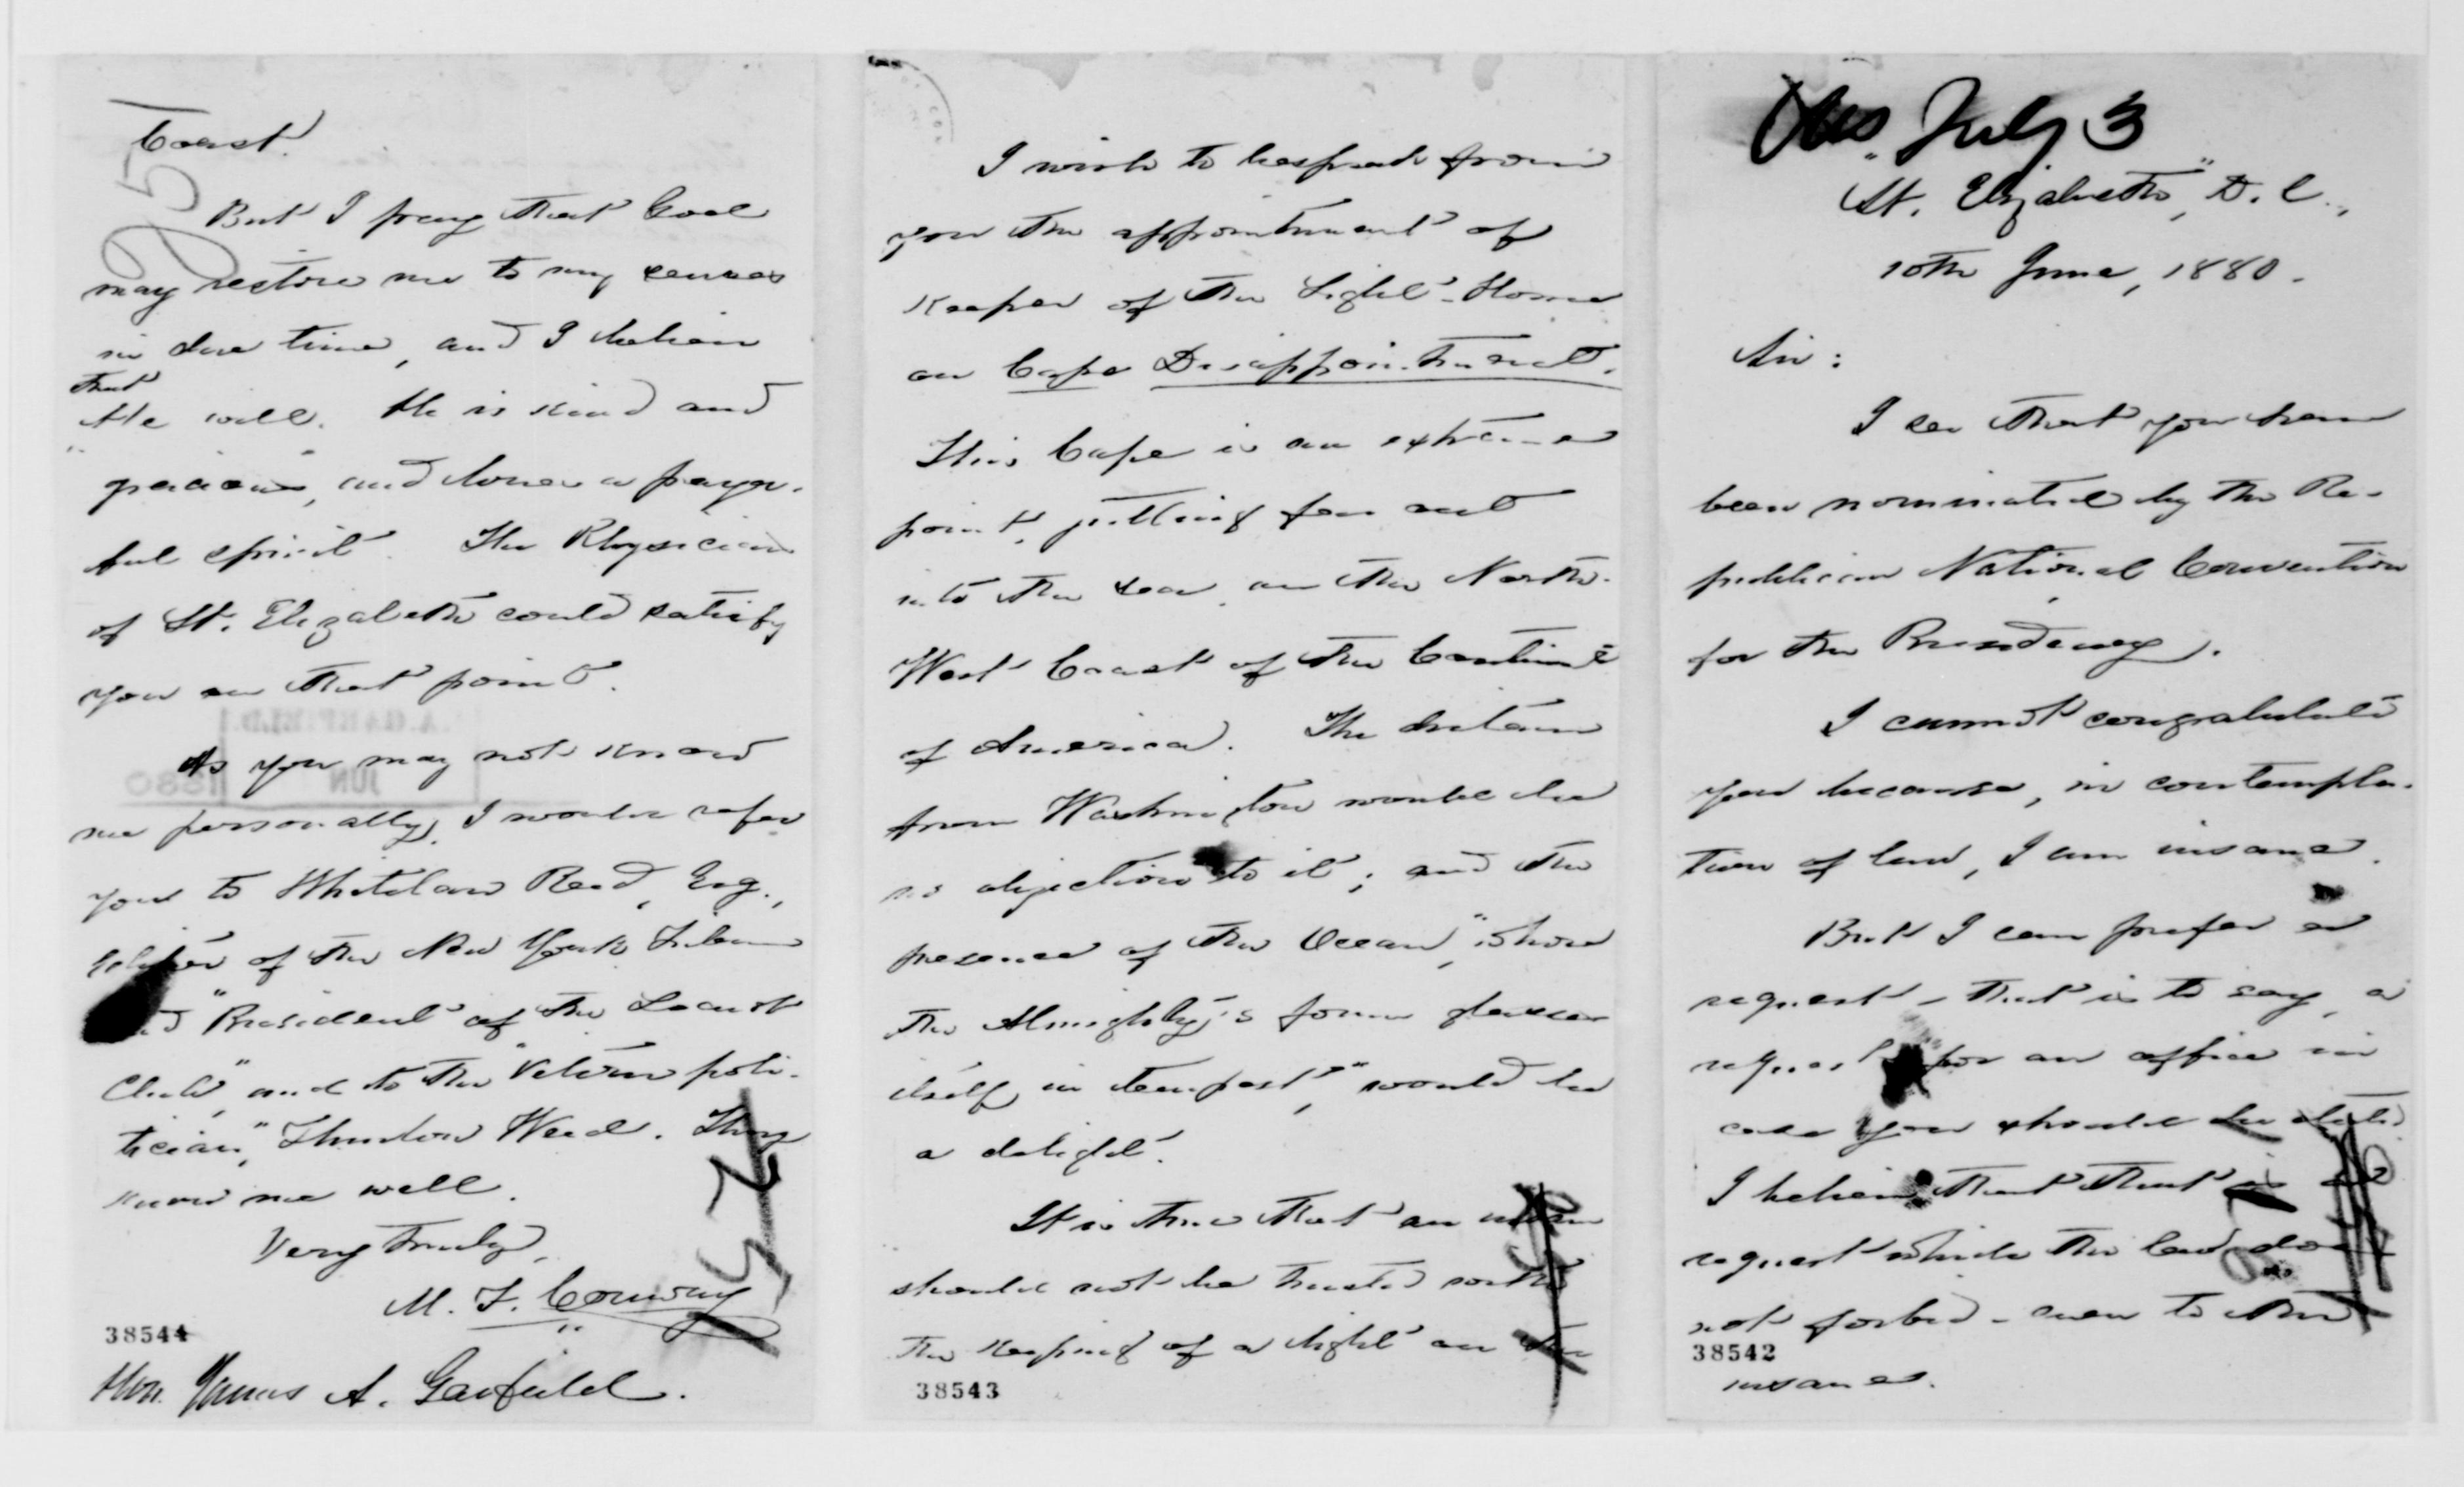 Ans July 3
"St. Elizabeth", D. C.,
10th June, 1880.
Sir:
I see that you have
been nominated by the Re-
publican National Convention
for the Presidency.
I cannot congratulate
you because, in contempla-
tion of law, I am insane.
But I can prefer a
request - that is to say, a
request for an office in
case you should be elected.
I believe that that is a
request which the law does
not forbid - even to the
38542
insane.
I wish to bespeak from
you the appointment of
Keeper of the Light-House
on Cape Disappointment.
This Cape is an extreme
point, jutting far out
into the sea, on the North-
West Coast of the Continent
of America. The distance
from Washington would be
no objection to it; and the
presence of the Ocean, "where
the Almighty's form glasses
itself in tempest", would be
a delight.
It is true that an insane
should not be trusted with
the keeping of a light on the
38543
Coast.
But I pray that God
may restore me to my senses
in due time, and I believe
that
He will. He is kind and
gracious, and loves a prayer-
ful spirit. The Physician
of St. Elizabeth could satisfy
you on that point.
As you may not know
me personally, I would refer
you to Whitelaw Reid, Esq.,
Editor of the New York Tribune
and "President of the Locust
Club", and to the "Veteran poli-
tician," Thurlow Weed. They
know me well.
Very truly,
M. F. Conway
38544
Hon. James A. Garfield.